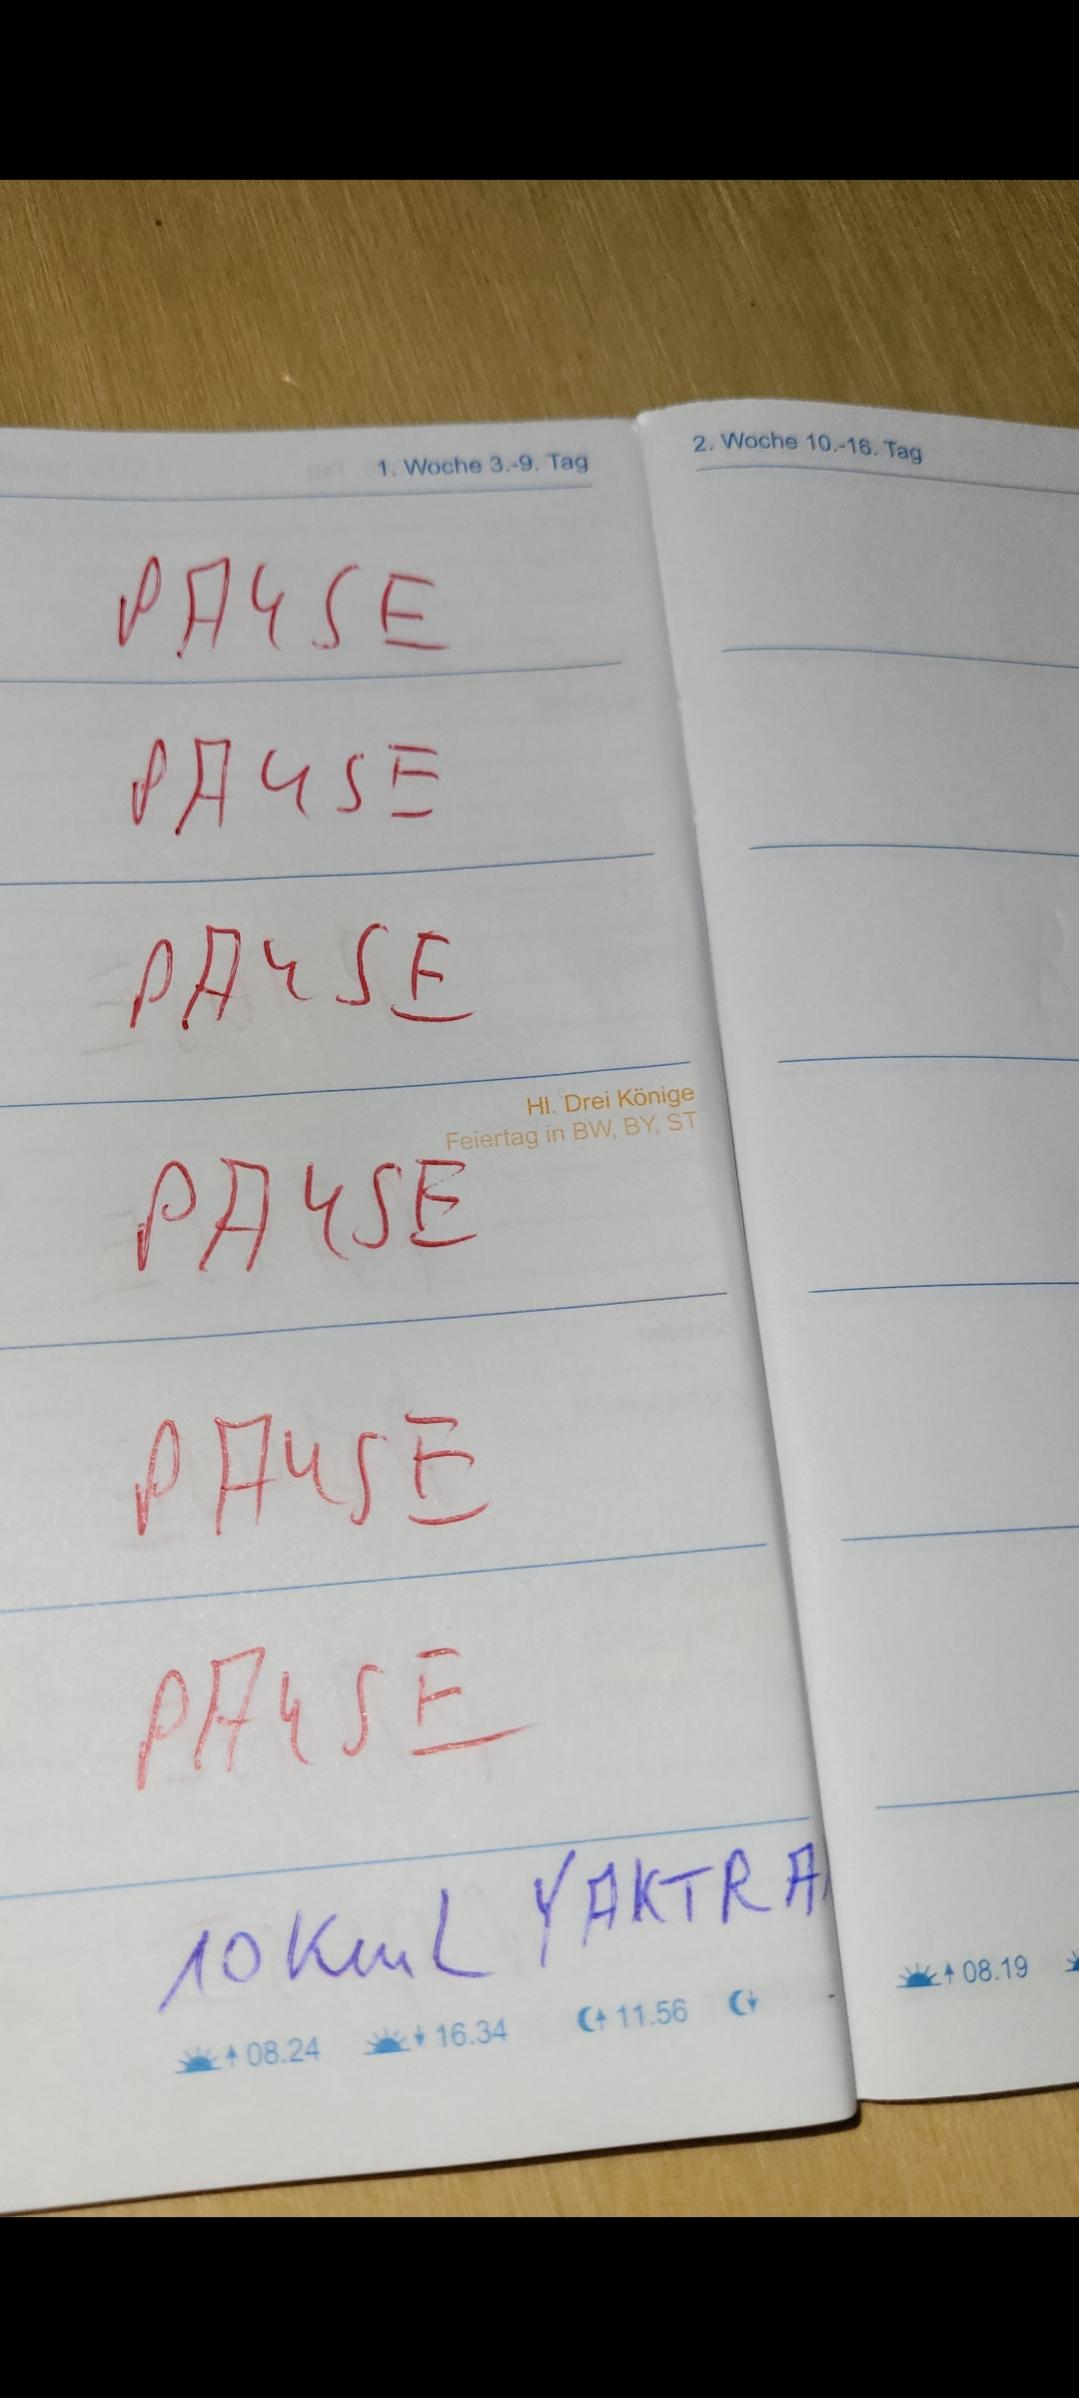 1. Woche 3.-9. Tag
PAUSE
PAUSE
PAUSE
Hl. Drei Könige
Feiertag in BW, BY, ST
PAUSE
PAUSE
PAUSE
10 Km L YAKTRA
08.24 16.34 11.56 -
2. Woche 10.-16. Tag
08.19